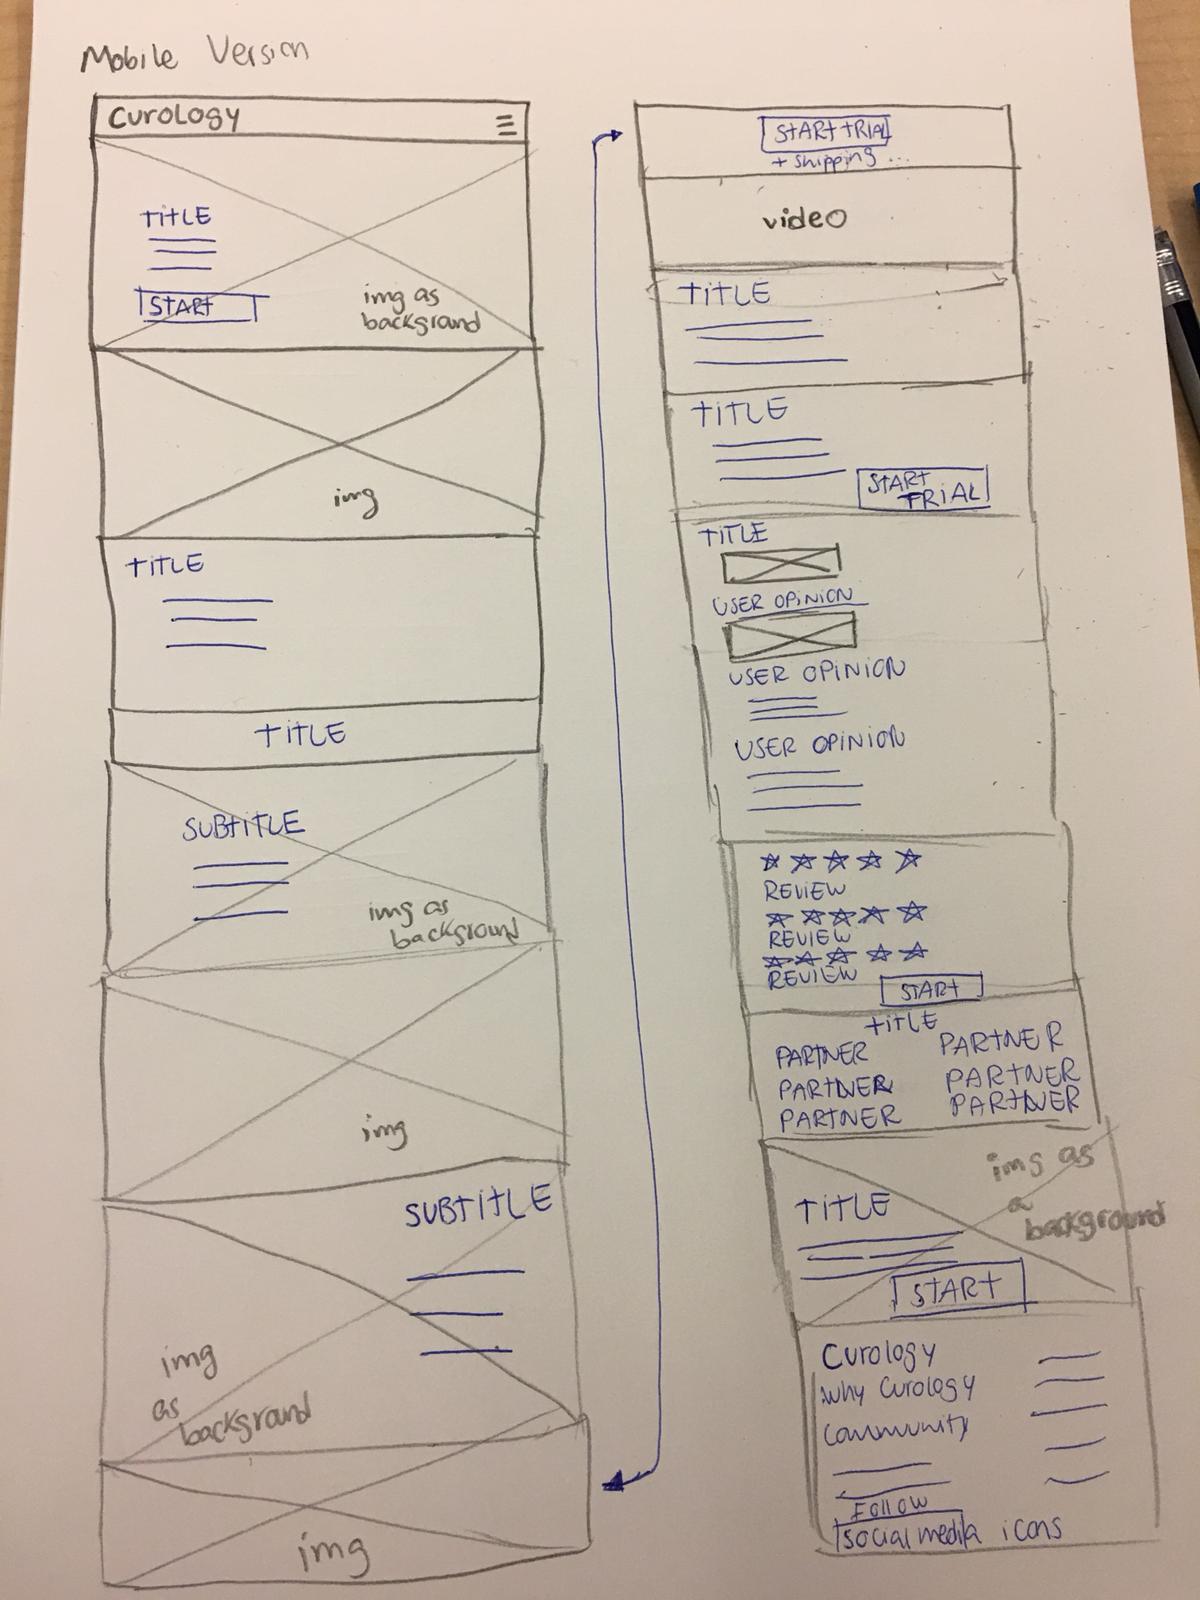 Mobile Version
Curology
TITLE
START
img as
backgrand
img
TITLE
TITLE
SUBTITLE
img as
background
img
SUBTITLE
img
as
background
img
START TRIAL
+ shipping ...
video
TITLE
TITLE
START
TRIAL
TITLE
USER OPINION
USER OPINION
USER OPINION
REVIEW
REVIEW
REVIEW
START
TITLE
PARTNER PARTNER
PARTNER PARTNER
PARTNER PARTNER
img as
a
background
TITLE
START
Curology
Why Curology
Community
Follow
social media icons